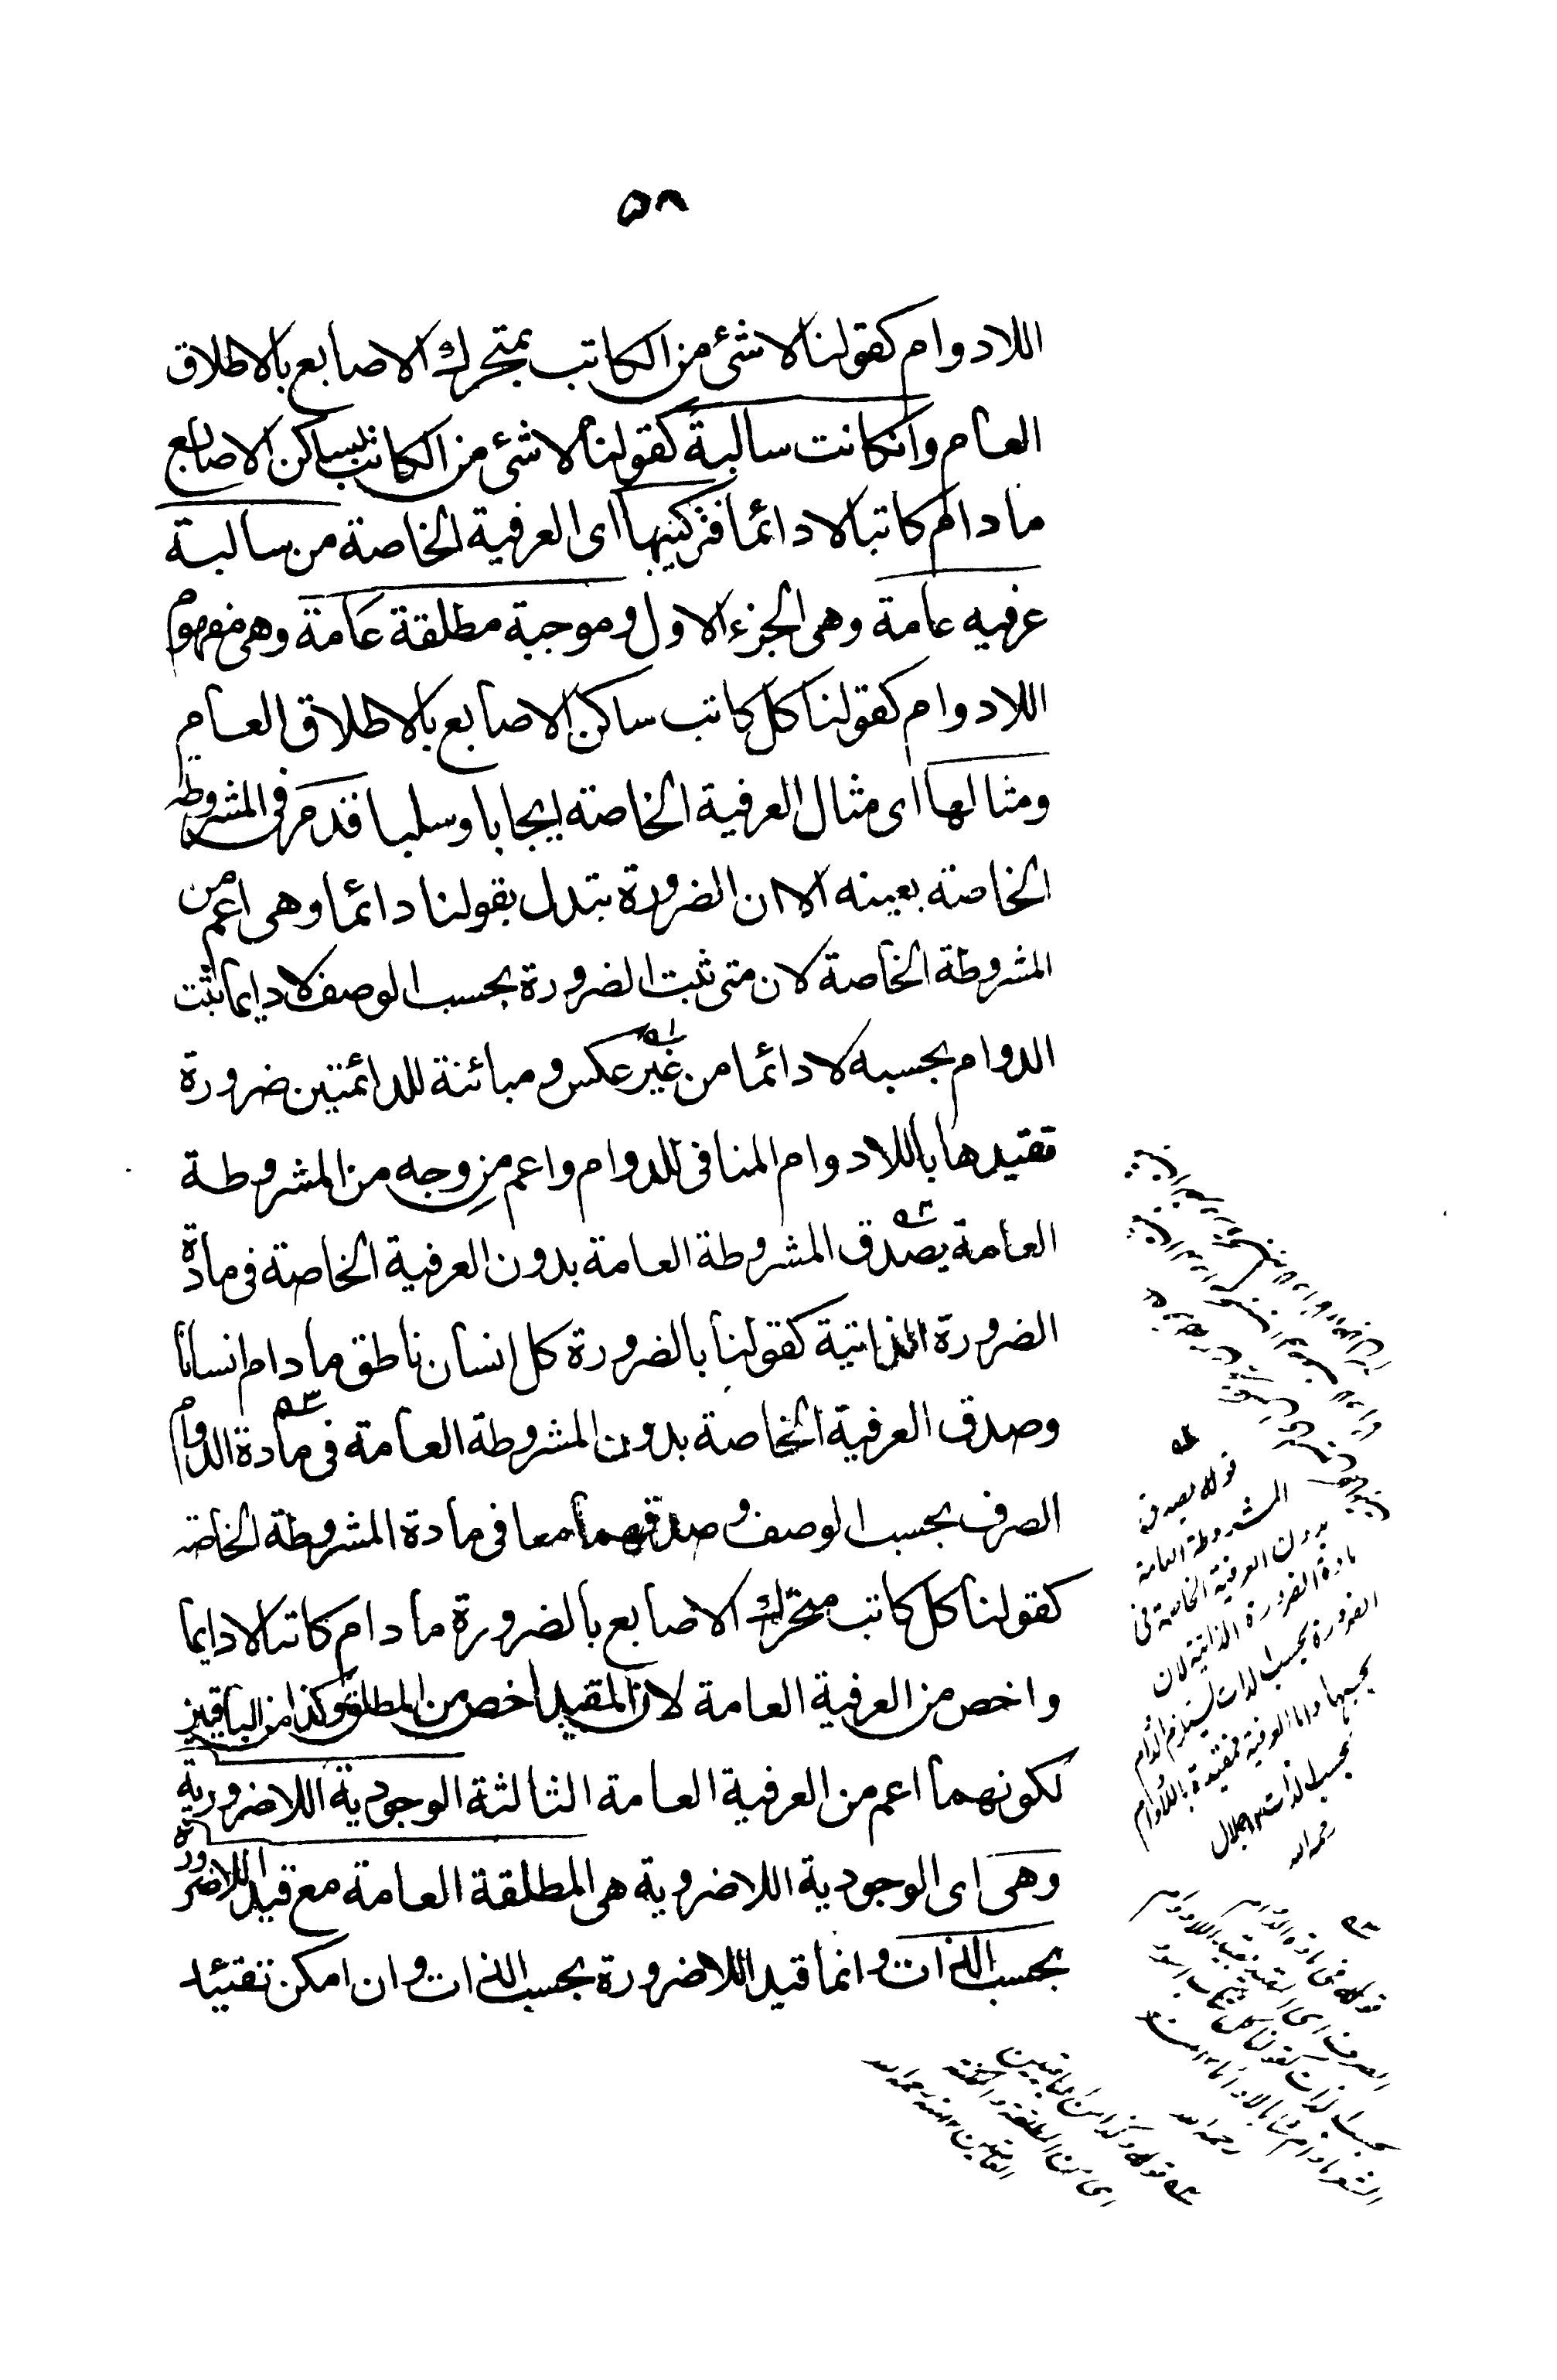 ٥٨
اللادوام كقولنا لا شئ من الكاتب بمتحرك الاصابع بالاطلاق
العام وانكانت سالبة كقولنا لا شئ من الكاتب بساكن الاصابع
ما دام كاتبا لا دائما فتركيبها اى العرفية الخاصة من سالبة
عرفيه عامة وهى الجزء الاول وموجبة مطلقة عامة وهى مفهوم
اللادوام كقولنا كل كاتب ساكن الاصابع بالاطلاق العام
ومثالها اى مثال العرفية الخاصة ايجابا وسلبا قد مر فى المشروطة
الخاصة بعينه الا ان الضرورة بتدل بقولنا دائما وهى اعم من
المشروطة الخاصة لان متى ثبت الضرورة بحسب الوصف لا دايما ثبت
الدوام بحسبه لا دائما من غير عكس ومبائنة للدائمتين ضرورة
تقيدها باللادوام المنافى للدوام واعم من وجه من المشروطة
العامة يصدق المشروطة العامة بدون العرفية الخاصة فى مادة
الضرورة الذاتية كقولنا بالضرورة كل انسان ناطق ما دام انسانا
وصدق العرفية الخاصة بدون المشروطة العامة فى مادة الدوام
الصرف بحسب الوصف وصدقهما معا فى مادة المشروطة الخاصة
كقولنا كل كاتب متحرك الاصابع بالضرورة ما دام كاتبا لا دايما
واخص من العرفية العامة لان المقيد اخص من المطلق وكذا من الباقيين
لكونهما اعم من العرفية العامة الثالثة الوجودية اللاضرورية
وهى اى الوجودية اللاضروية هى المطلقة العامة مع قيد اللاضرورة
بحسب الذات وانما قيد اللاضرورة بحسب الذات وان امكن تقئيد
قوله يصدق
المشروطة العامة
بدون العرفية الخاصة فى
مادة الضرورة الذاتية لان
الضرورة بحسب الذات يستلزم الدوام
بحسبها واما العرفية فمقيدة باللادوام
بحسب الذات جلال
رحمه الله
قوله فى مادة الدوام
الصرف اى
بحسب الذات كقولنا كل
رحمه الله
قوله وكذا من الباقيين
اى من المطلقة
رحمه الله